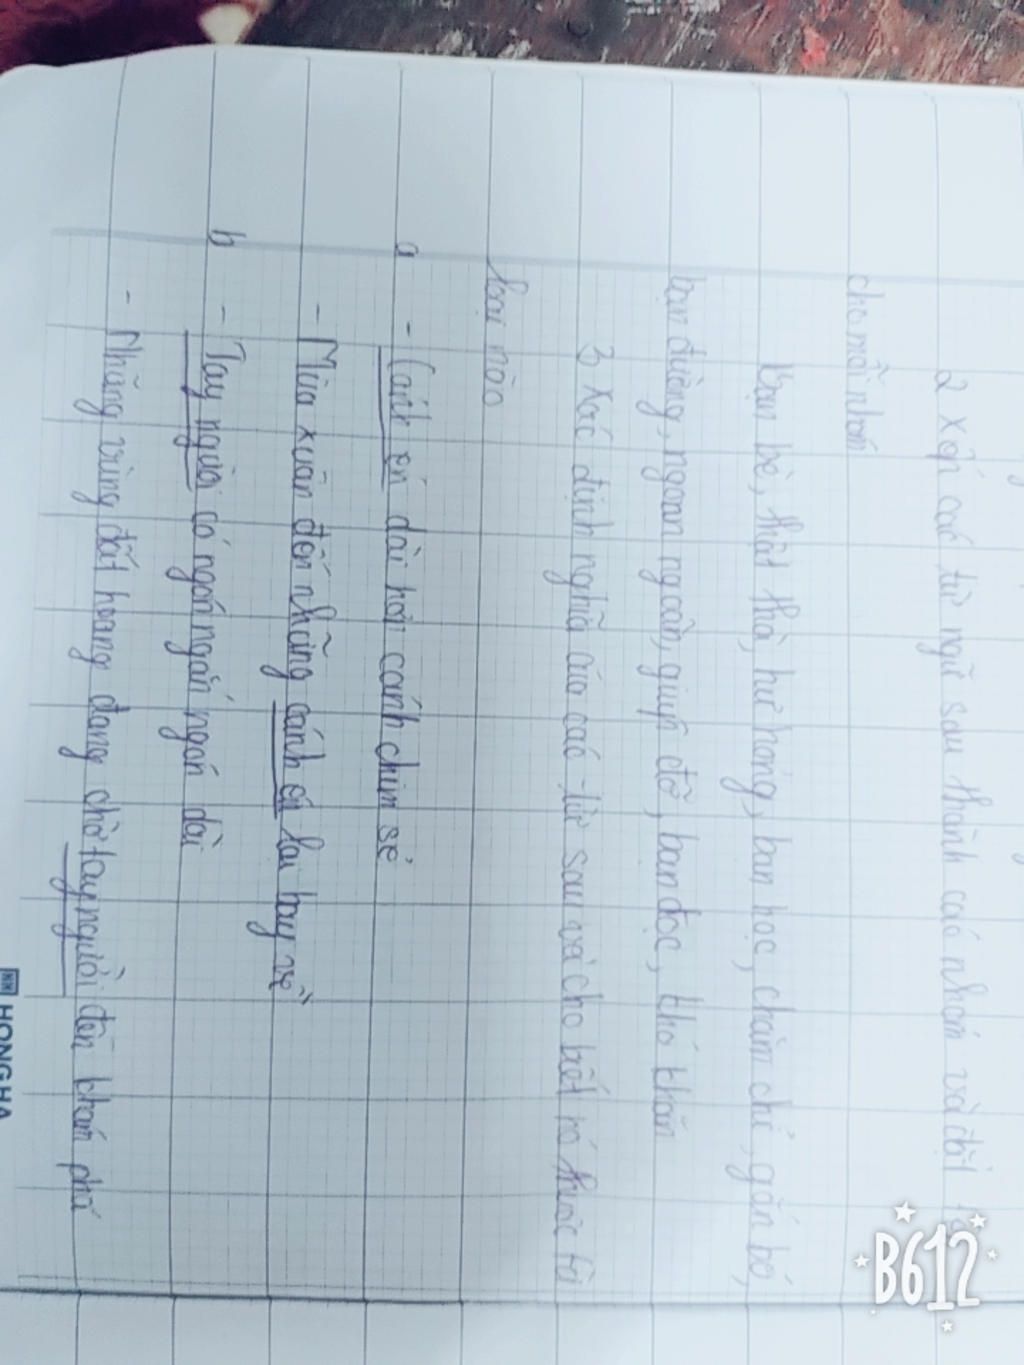 2 Xếp các từ ngữ sau thành các nhóm và đặt
cho mỗi nhóm
Bạn bè, thật thà, hư hỏng, bạn học, chăm chỉ, gắn bó,
bạn đường, ngoan ngoãn, giúp đỡ, bạn đọc, khó khăn
3 Xác định nghĩa của các từ sau và cho biết nó thuộc từ
loại nào
a - Cánh én dài hơn cánh chim sẻ
- Mùa xuân đến những cánh én lại bay về
b - Tay người có ngón ngắn ngón dài
- Những vùng đất hoang đang chờ tay người đến khám phá
HONG HA
B612